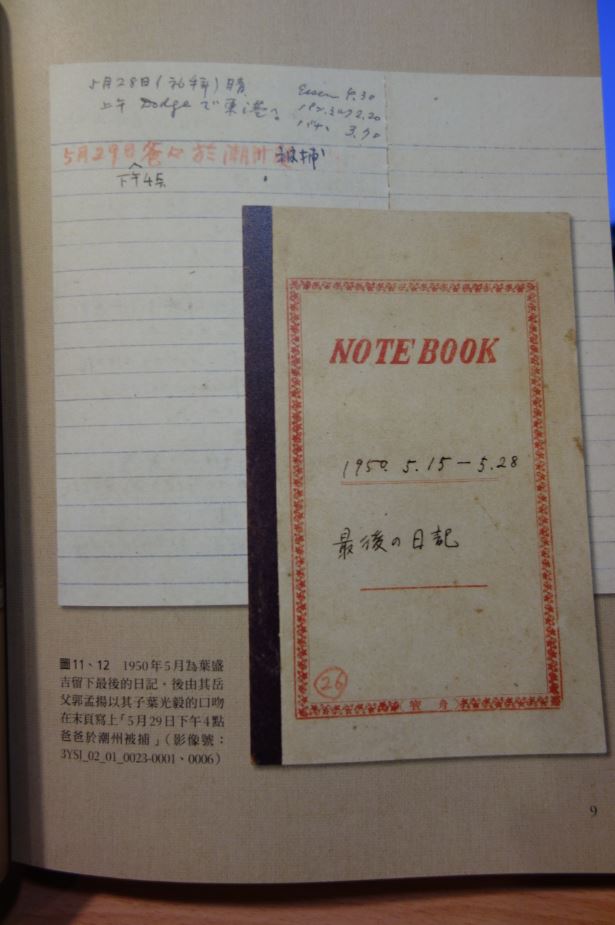 5月28日(礼拝)晴
上午 Dodge で東港へ
Essen 4.30
3.70
5月29日爸々於潮州被捕
下午4点
NOTE BOOK
1950. 5.15－5.28
最後の日記
26
圖11、12　1950年5月為葉盛
吉留下最後的日記，後由其岳
父郭孟揚以其子葉光毅的口吻
在末頁寫上「5月29日下午4點
爸爸於潮州被捕」（影像號：
3YSJ_02_01_0023-0001、0006）
9